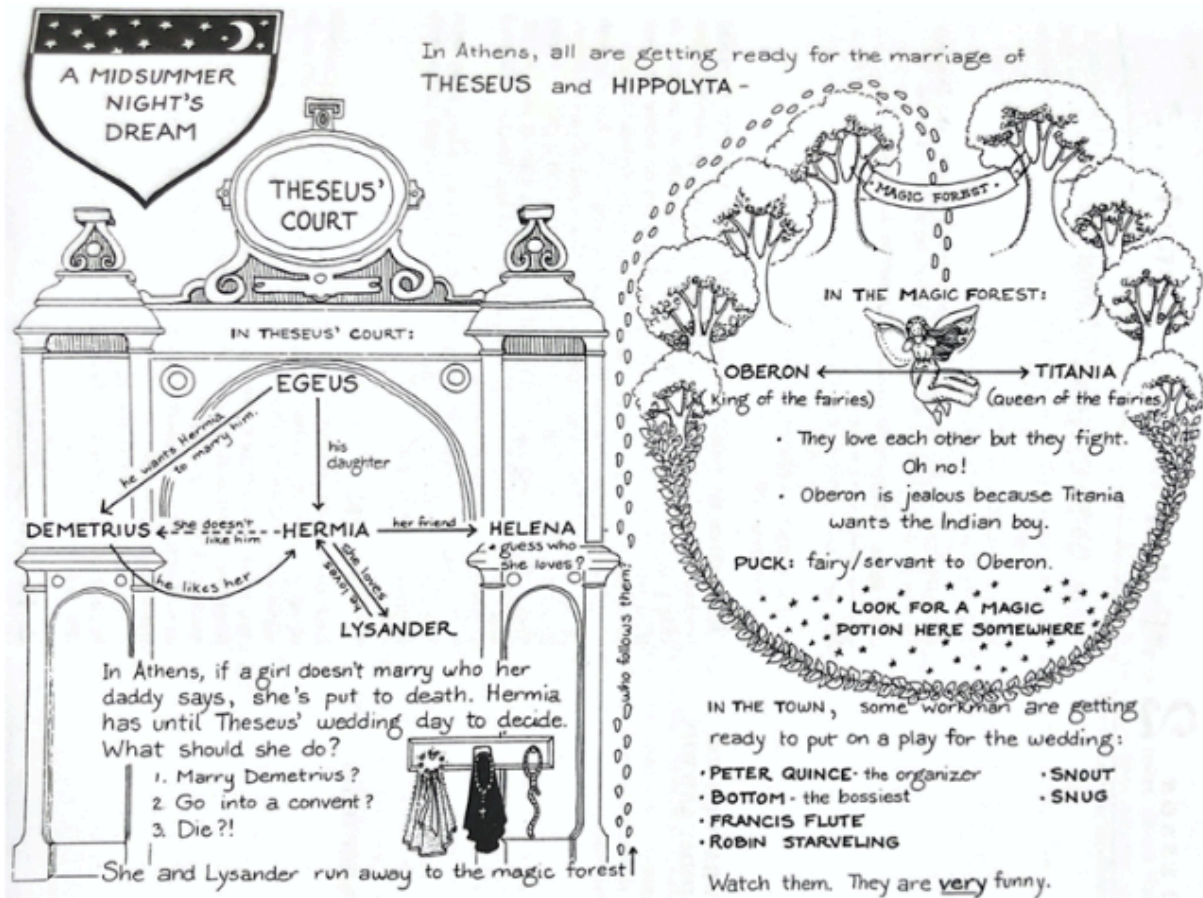 A MIDSUMMER
NIGHT'S
DREAM
In Athens, all are getting ready for the marriage of
THESEUS and HIPPOLYTA -
THESEUS'
COURT
IN THESEUS' COURT:
EGEUS
he wants Hermia
to marry him.
his
daughter
DEMETRIUS
she doesn't
like him
HERMIA
her friend
HELENA
• guess who
she loves?
he likes her
she loves
he loves
LYSANDER
In Athens, if a girl doesn't marry who her
daddy says, she's put to death. Hermia
has until Theseus' wedding day to decide.
What should she do?
1. Marry Demetrius?
2 Go into a convent?
3. Die?!
She and Lysander run away to the magic forest
who follows them?
• MAGIC FOREST •
IN THE MAGIC FOREST:
OBERON
(King of the fairies)
TITANIA
(Queen of the fairies
• They love each other but they fight.
Oh no!
• Oberon is jealous because Titania
wants the Indian boy.
PUCK: fairy/servant to Oberon.
LOOK FOR A MAGIC
POTION HERE SOMEWHERE
IN THE TOWN, some workman are getting
ready to put on a play for the wedding:
• PETER QUINCE - the organizer
• BOTTOM - the bossiest
• FRANCIS FLUTE
• ROBIN STARVELING
• SNOUT
• SNUG
Watch them. They are very funny.